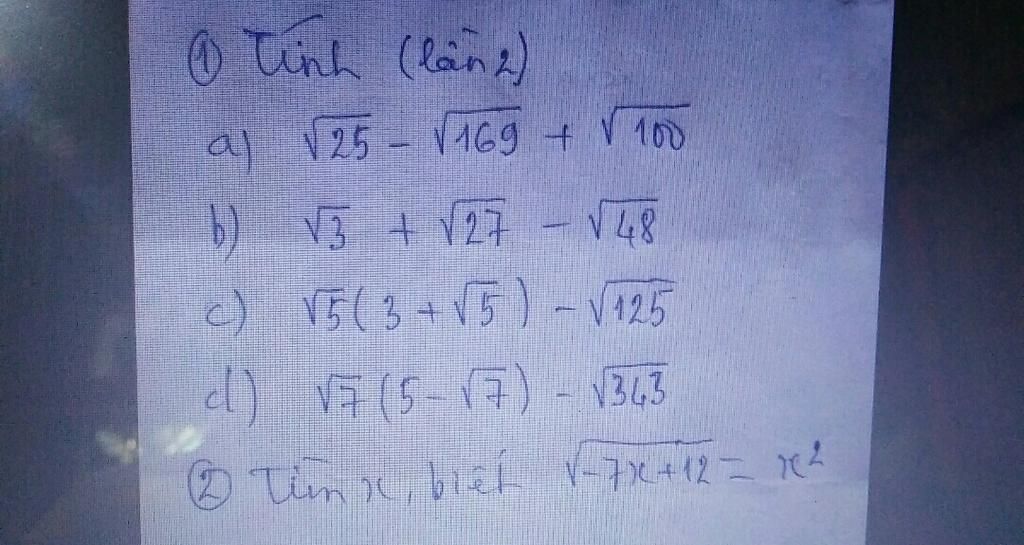 ① Tính (lần 2)
a) √25 - √169 + √100
b) √3 + √27 - √48
c) √5(3 + √5) - √125
d) √7(5 - √7) - √343
② Tìm x, biết √-7x+12 = x²